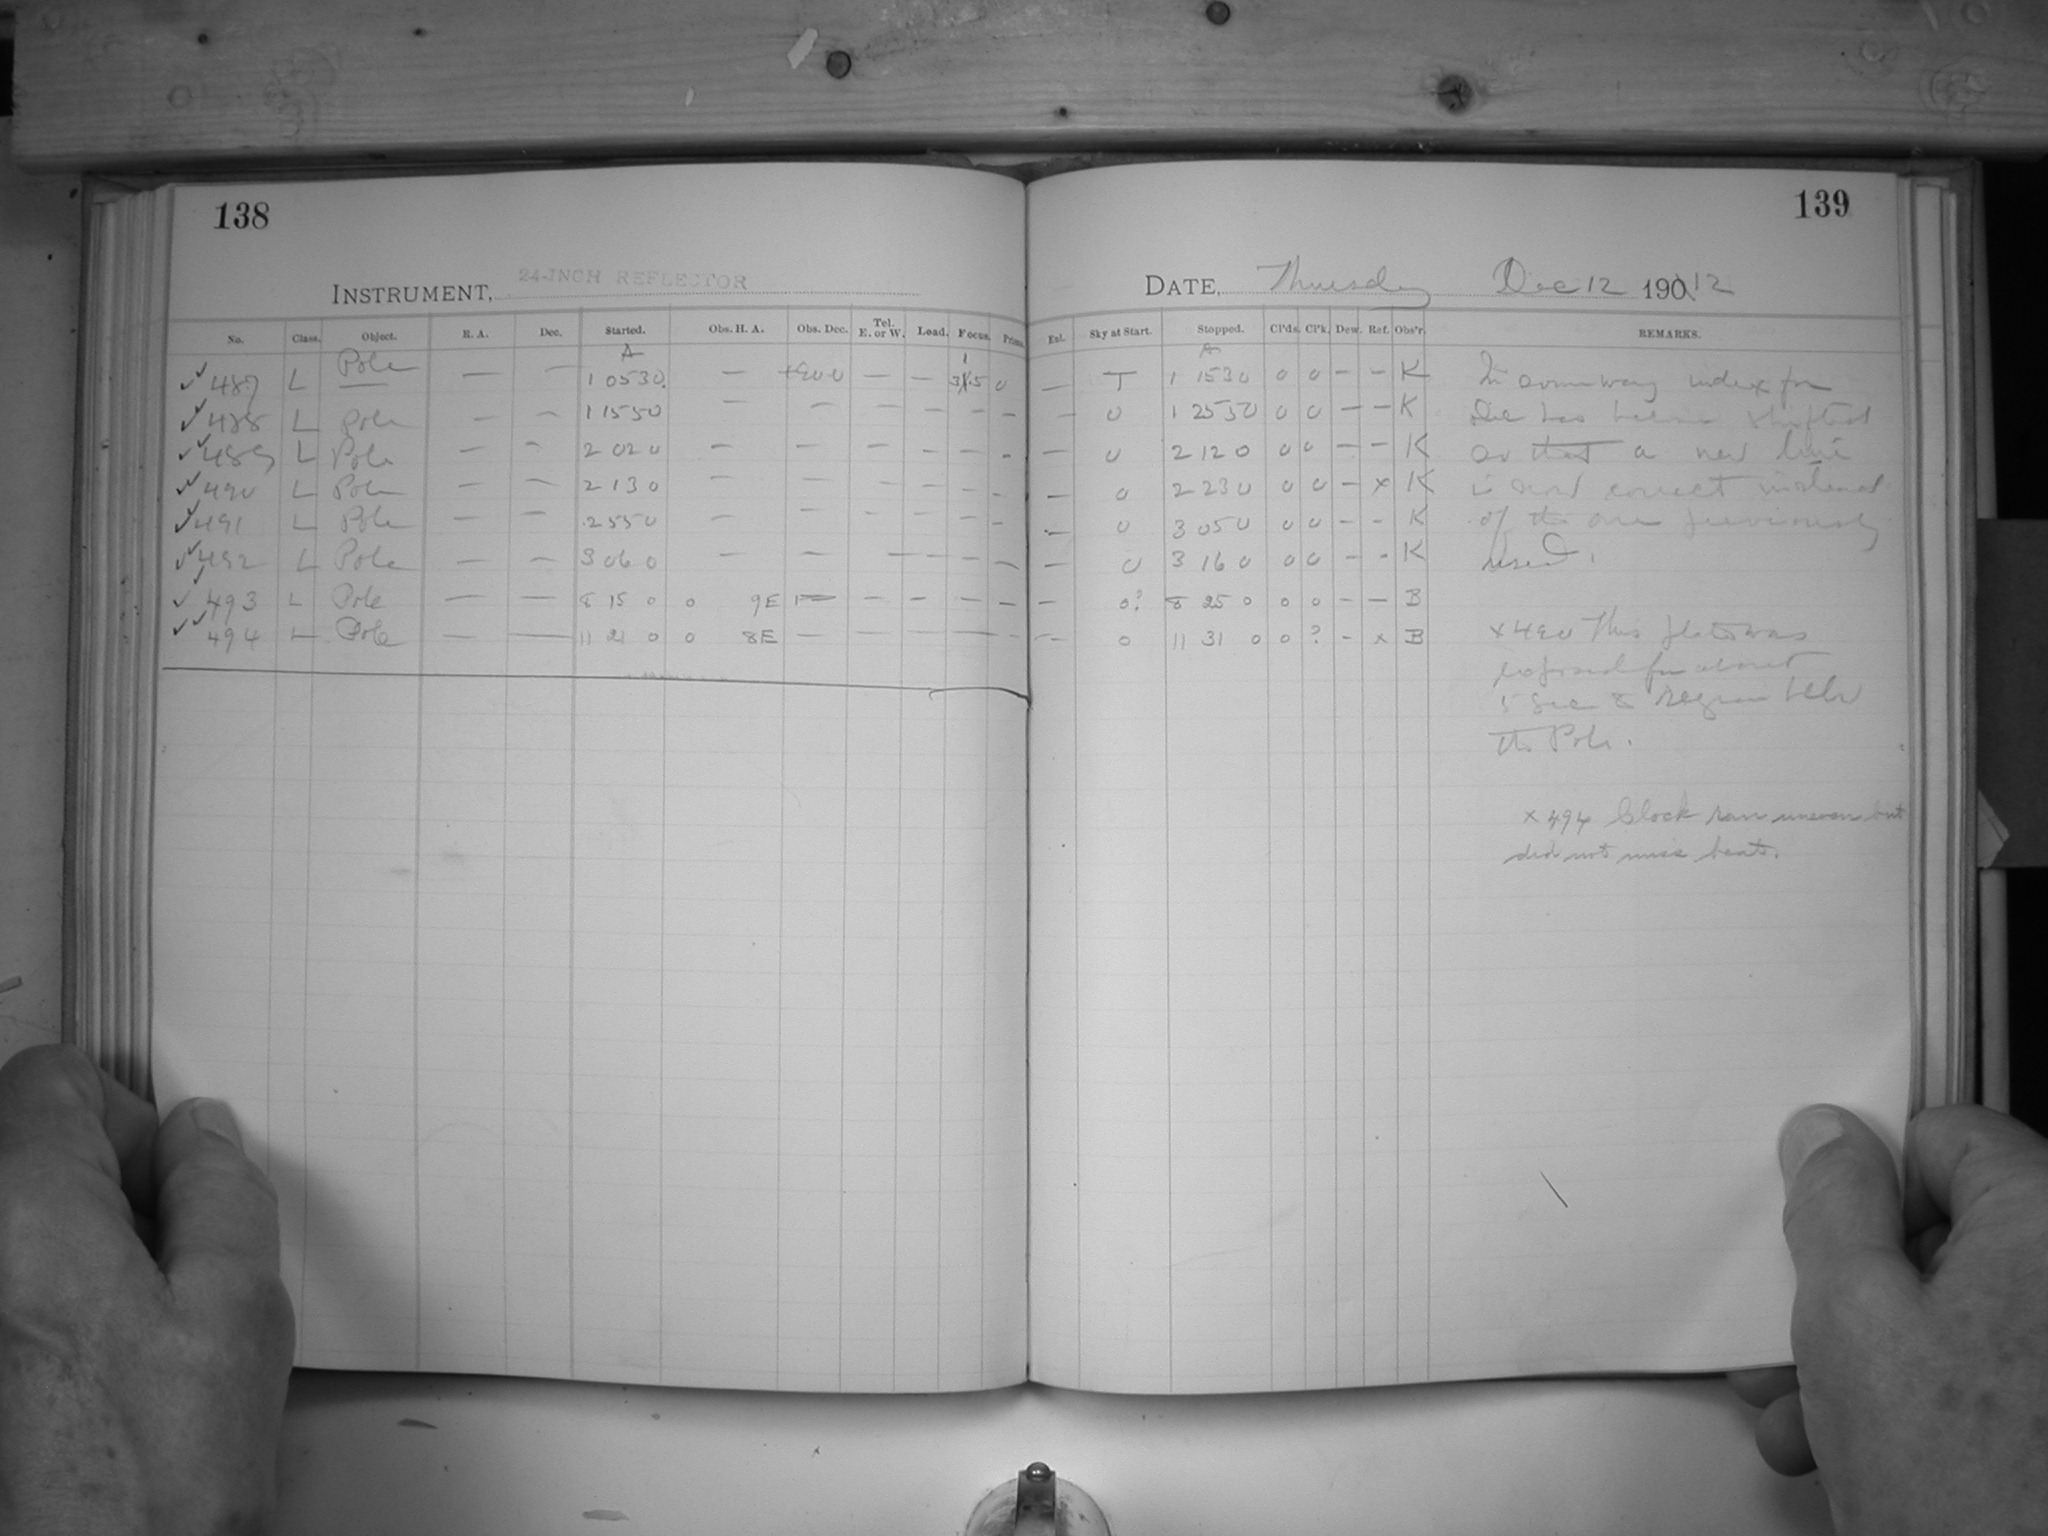 138
139
INSTRUMENT, 24-INCH REFLECTOR
DATE, Thursday Dec 12 190 12
No. Class. Object. R. A. Dec. Started. Obs. H. A. Obs. Dec. Tel. E. or W. Load. Focus. Prism. Ext. Sky at Start. Stopped. Cl'ds. Cl'k. Dew. Ref. Obs'r. REMARKS.
A A
✓✓ 487 L Pole — — 1 05 30 — +900 — — 0 — T 1 15 30 0 0 — — K
✓✓ 488 L Pole — — 1 15 50 — — — — — — — 0 1 25 50 0 0 — — K
✓✓ 489 L Pole — — 2 02 0 — — — — — — — 0 2 12 0 0 0 — — K
✓✓ 490 L Pole — — 2 13 0 — — — — — — — 0 2 23 0 0 0 — x K
✓✓ 491 L Pole — — 2 55 0 — — — — — — — 0 3 05 0 0 0 — — K
✓✓ 492 L Pole — — 3 06 0 — — — — — — — 0 3 16 0 0 0 — — K
✓✓ 493 L Pole — — 8 15 0 0 9E — — — — — — 0? 8 25 0 0 0 — — B
✓✓ 494 L Pole — — 11 21 0 0 8E — — — — — — 0 11 31 0 0 ? — x B
In some way index for
Dec has been shifted
so that a new line
is now correct instead
of the one previously
used.
x 490 This plate was
exposed for about
5 sec region
the Pole.
x 494 Clock ran uneven but
did not miss beats.